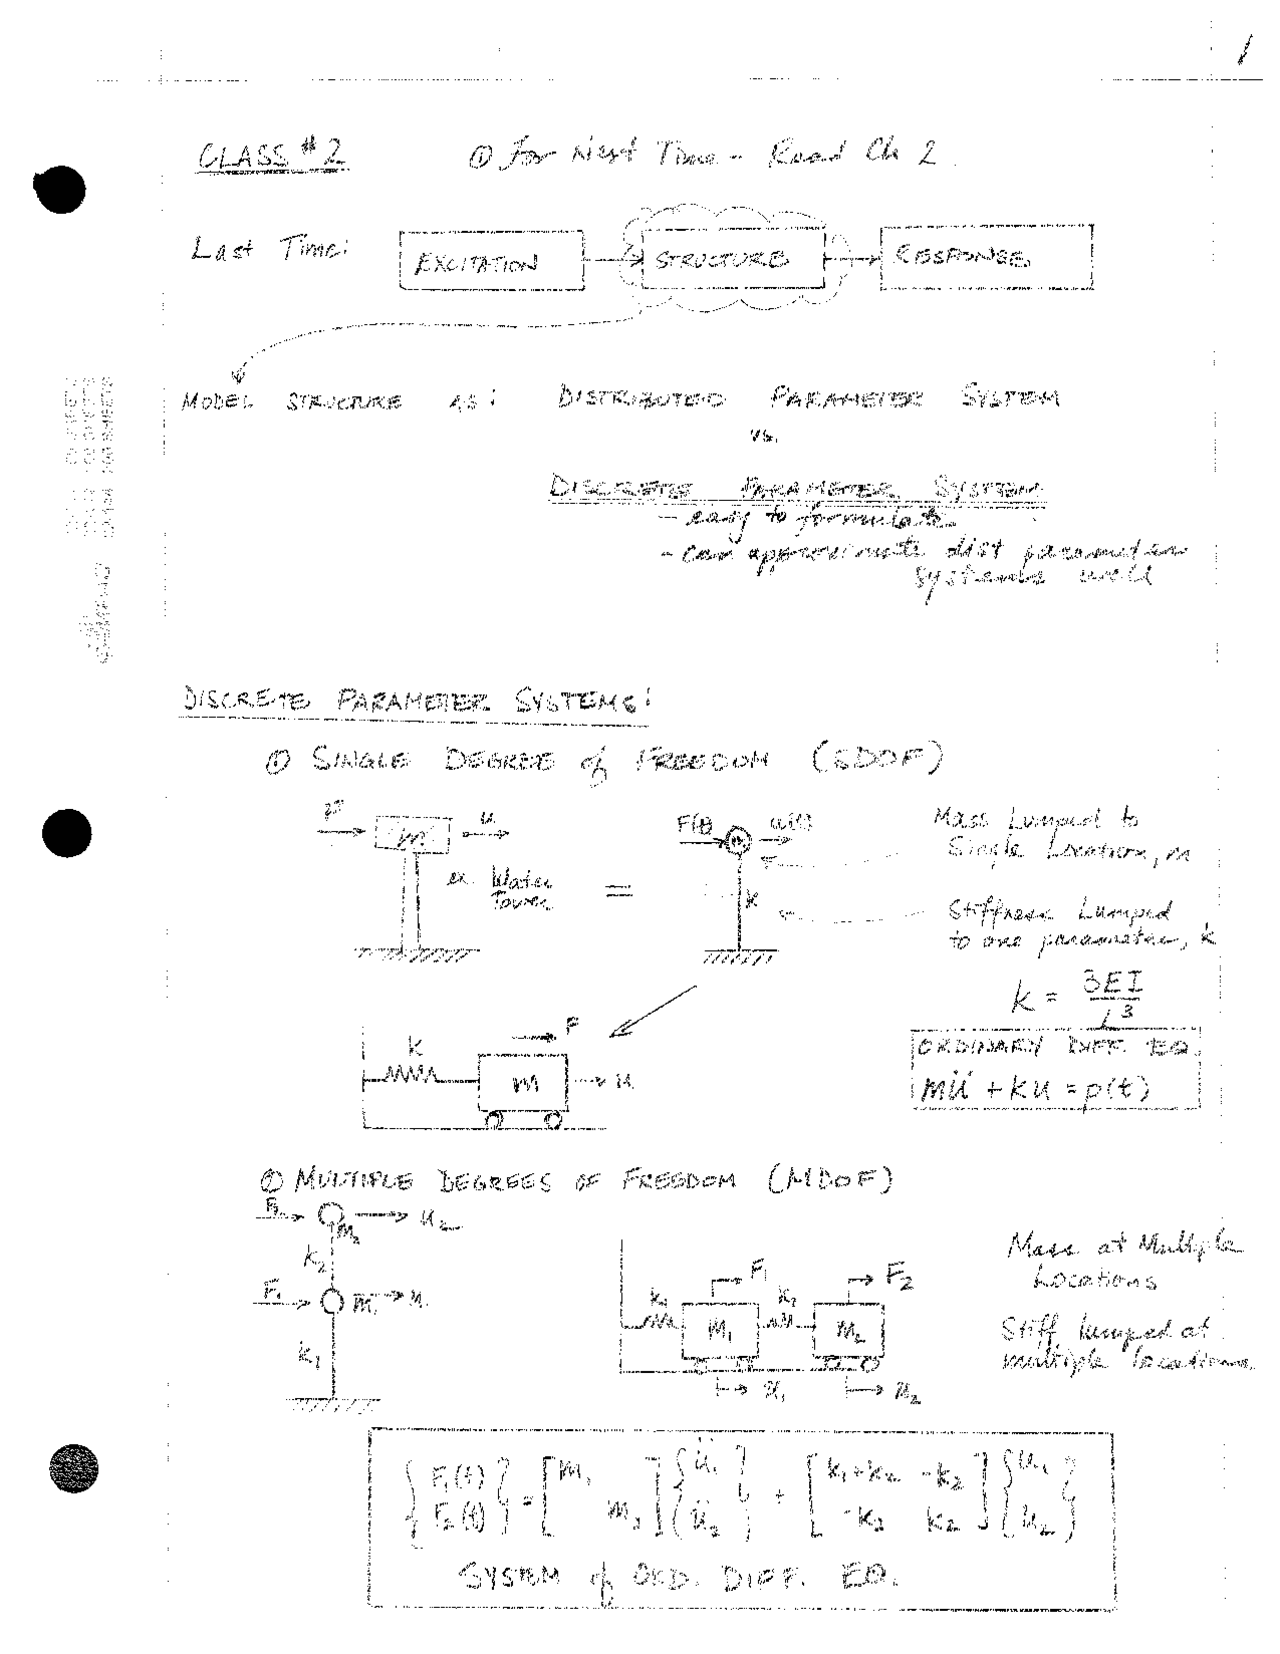 1
CLASS #2 ① For Next Time - Read Ch 2.
Last Time: EXCITATION STRUCTURE RESPONSE
MODEL STRUCTURE AS: DISTRIBUTED PARAMETER SYSTEM
vs.
DISCRETE PARAMETER SYSTEM
- easy to formulate
- can approximate dist parameter
systems well
DISCRETE PARAMETER SYSTEMS:
① SINGLE DEGREE of FREEDOM (SDOF)
m u
ex. Water
Tower
=
F(t) u(t)
k
Mass Lumped to
Single Location, m
Stiffness Lumped
to one parameter, k
k = 3EI / L³
k m F u
ORDINARY DIFF. EQ.
mü + ku = p(t)
② MULTIPLE DEGREES OF FREEDOM (MDOF)
F₂ m₂ u₂
k₂
F₁ m₁ u₁
k₁
F₁ F₂
k₁ m₁ k₂ m₂
u₁ u₂
Mass at Multiple
Locations
Stiff lumped at
multiple locations
{F₁(t) F₂(t)} = [m₁ m₂] {ü₁ ü₂} + [k₁+k₂ -k₂ -k₂ k₂] {u₁ u₂}
SYSTEM of ORD. DIFF. EQ.